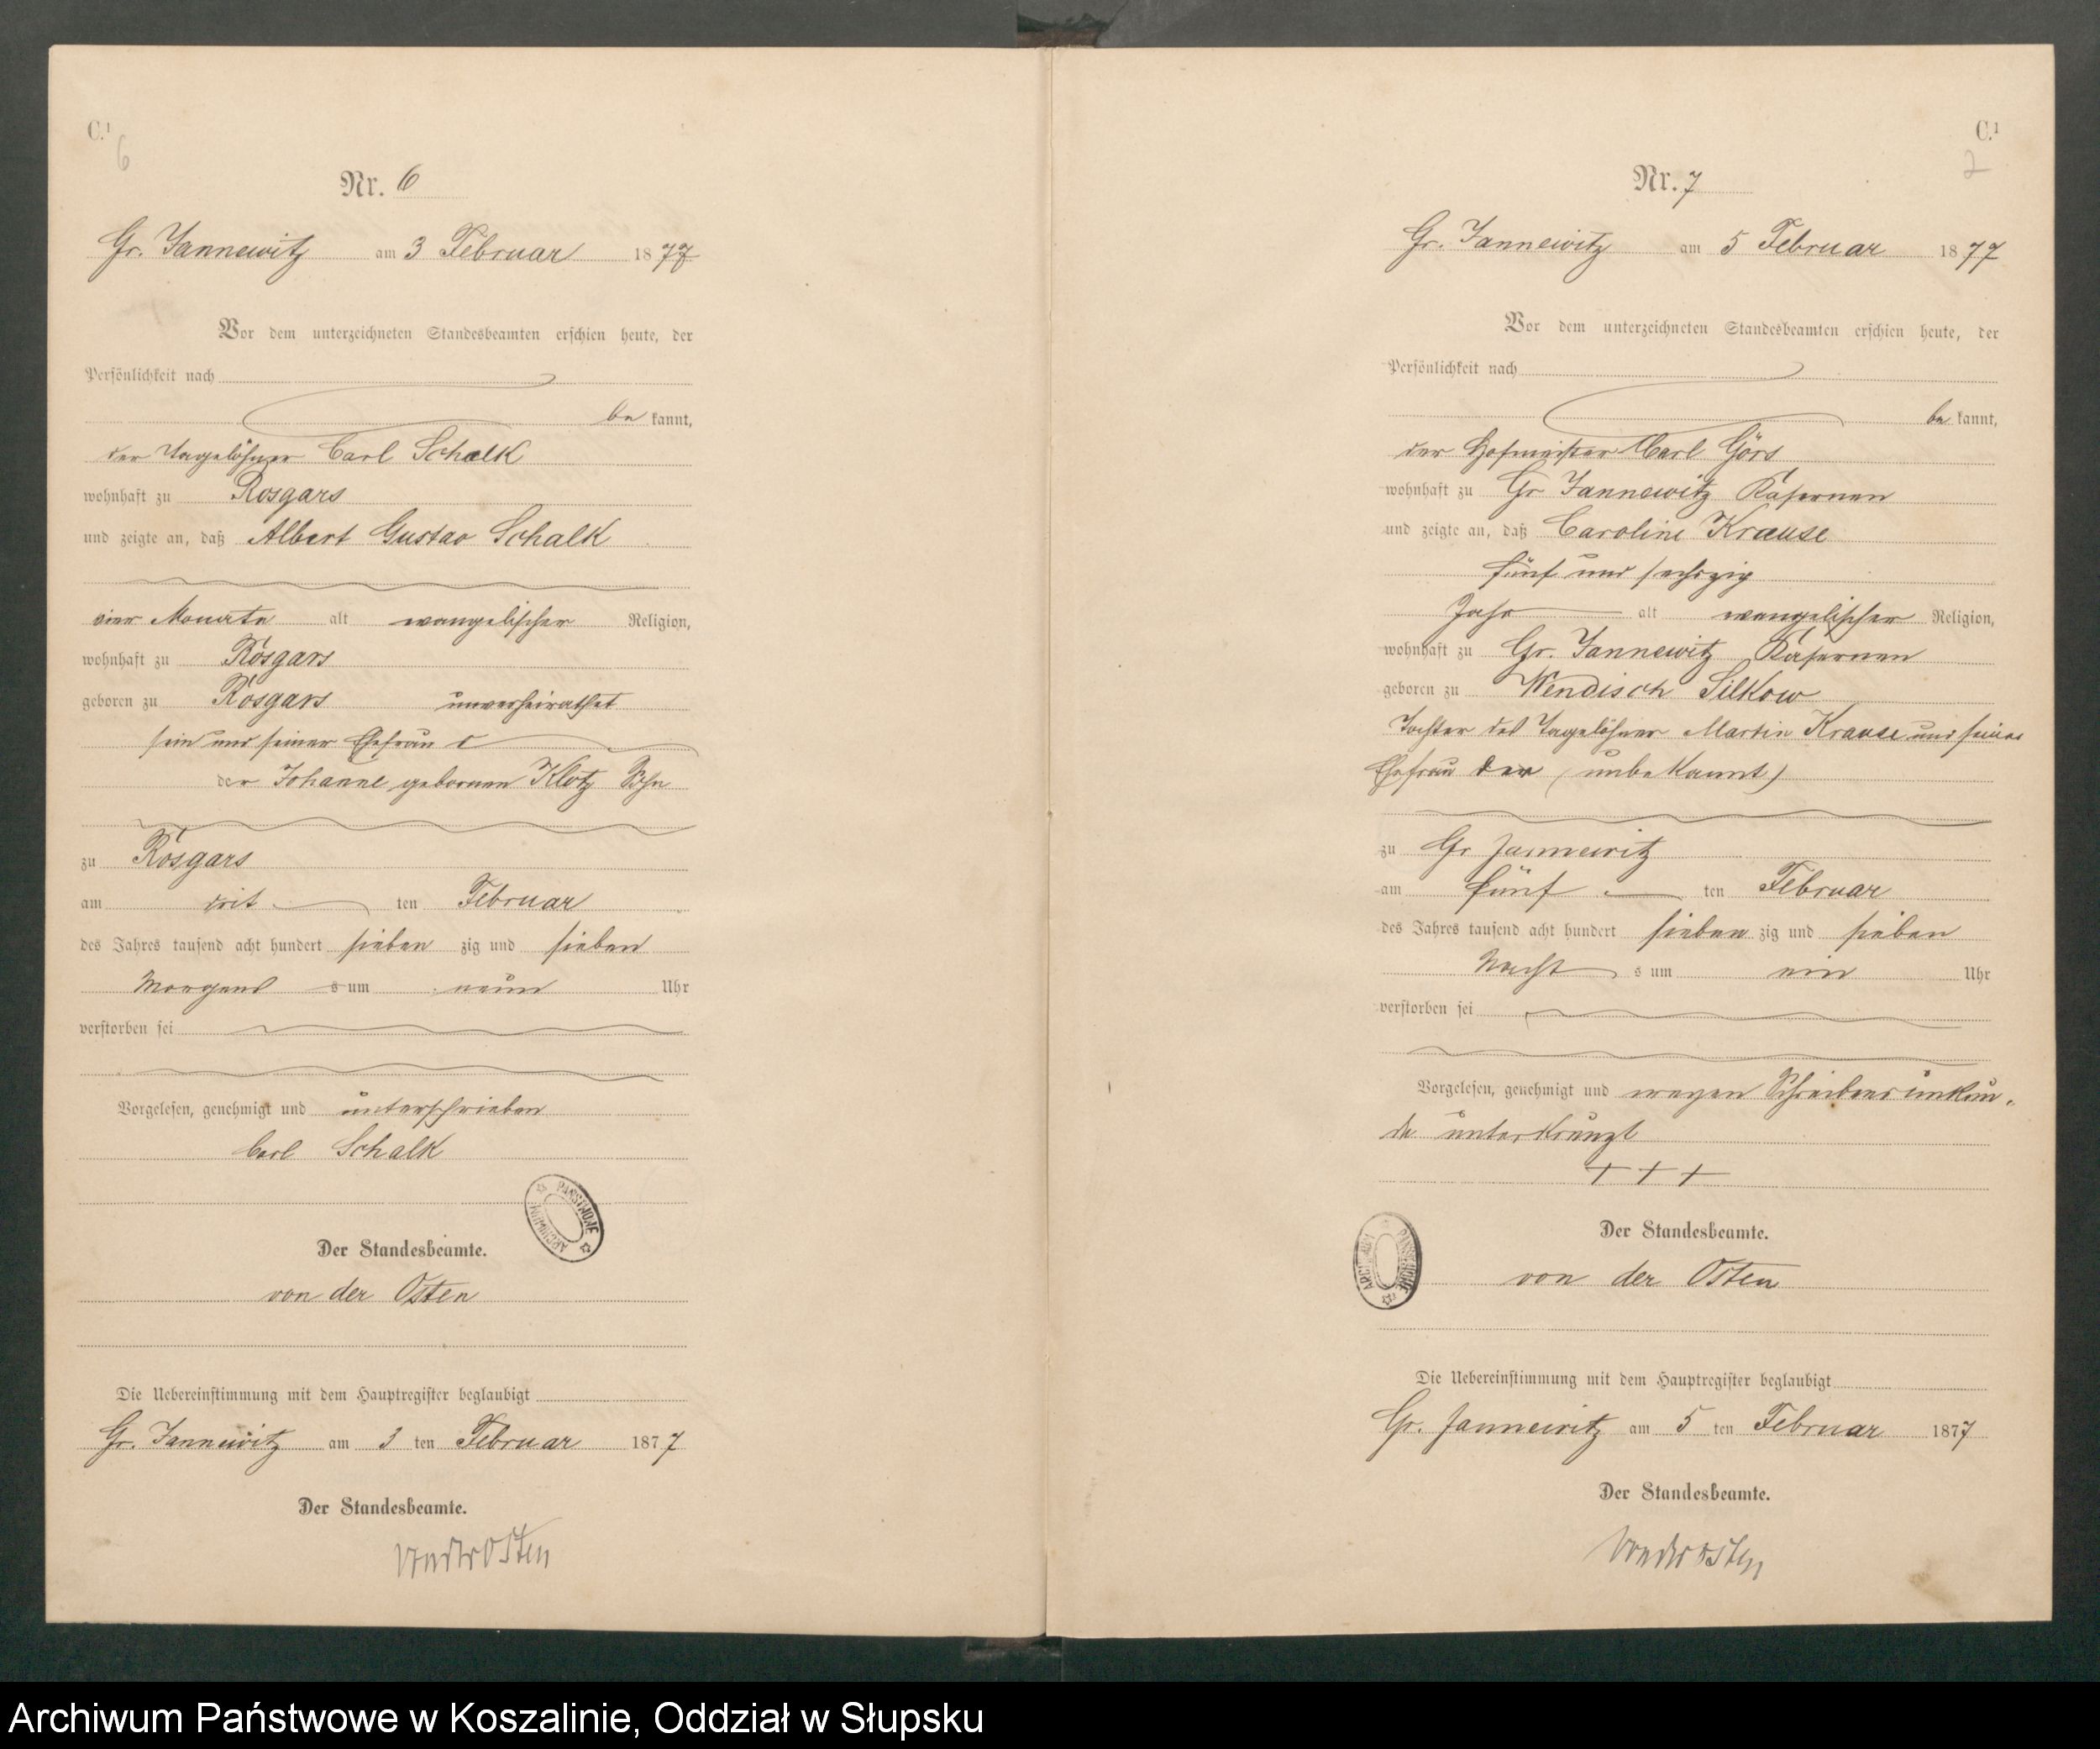 C.¹
6
Nr. 6
Gr. Jannewitz am 3 Februar 1877
Vor dem unterzeichneten Standesbeamten erschien heute, der
Persönlichkeit nach
be kannt,
der Tagelöhner Carl Schalk
wohnhaft zu Rosgars
und zeigte an, daß Albert Gustav Schalk
vier Monate alt evangelischer Religion,
wohnhaft zu Rosgars
geboren zu Rosgars unverheirathet
sein und seiner Ehefrau
der Johanne gebornen Klotz Sohn
zu Rosgars
am drit ten Februar
des Jahres tausend acht hundert sieben zig und sieben
Morgens um neun Uhr
verstorben sei
Vorgelesen, genehmigt und unterschrieben
Carl Schalk
ARCHIWUM PAŃSTWOWE
Der Standesbeamte.
von der Osten
Die Uebereinstimmung mit dem Hauptregister beglaubigt
Gr. Jannewitz am 3 ten Februar 1877
Der Standesbeamte.
von der Osten
C.¹
7
Nr. 7
Gr. Jannewitz am 5 Februar 1877
Vor dem unterzeichneten Standesbeamten erschien heute, der
Persönlichkeit nach
be kannt,
der Hofmeister Carl Görs
wohnhaft zu Gr Jannewitz Kasernen
und zeigte an, daß Caroline Krause
fünf und sechszig
Jahr alt evangelischer Religion,
wohnhaft zu Gr. Jannewitz Kasernen
geboren zu Wendisch Silkow
Tochter des Tagelöhner Martin Krause und seiner
Ehefrau der (unbekannt)
zu Gr Jannewitz
am fünf ten Februar
des Jahres tausend acht hundert sieben zig und sieben
Nacht s um ein Uhr
verstorben sei
Vorgelesen, genehmigt und wegen Schreibensunkun-
de unterkreuzt
+ + +
Der Standesbeamte.
ARCHIWUM PAŃSTWOWE
von der Osten
Die Uebereinstimmung mit dem Hauptregister beglaubigt
Gr. Jannewitz am 5 ten Februar 1877
Der Standesbeamte.
von der Osten
Archiwum Państwowe w Koszalinie, Oddział w Słupsku